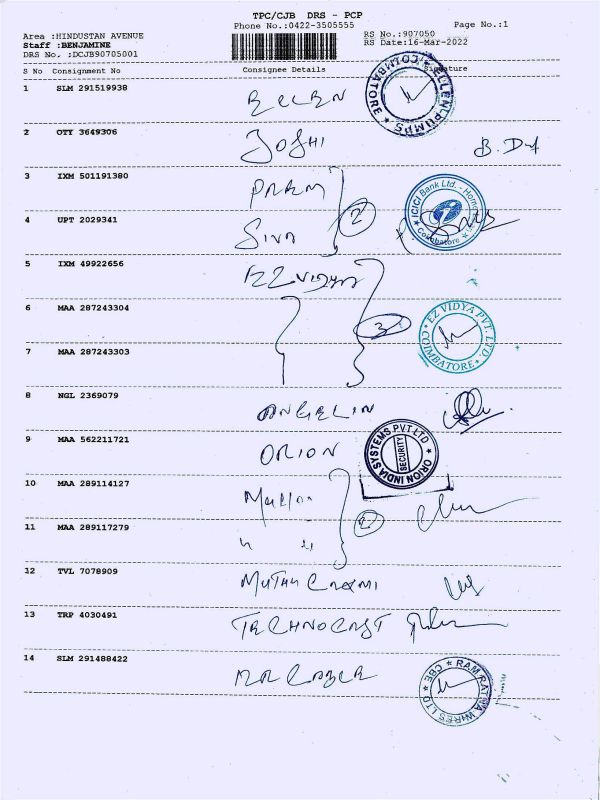 TPC/CJB DRS - PCP
Phone No.:0422-3505555
Page No.:1
Area :HINDUSTAN AVENUE
Staff :BENJAMINE
DRS No. :DCJB90705001
RS No.:907050
RS Date:16-Mar-2022
S No Consignment No Consignee Details Signature
1 SLM 291519938 ELLEN
COIMBATORE ★ ELLENPUMPS ★
2 OTY 3649306 JOSHI
3 IXM 501191380
4 UPT 2029341 SIVA
2
ICICI Bank Ltd. - Home
Coimbatore
5 IXM 49922656 EZ VIDYA
6 MAA 287243304
7 MAA 287243303
3
★ EZ VIDYA PVT. LTD. ★ COIMBATORE
8 NGL 2369079 ANGELIN
9 MAA 562211721 ORION
ORION INDIA SYSTEMS PVT LTD ★
SECURITY
10 MAA 289114127
11 MAA 289117279 " "
2
12 TVL 7078909
13 TRP 4030491 TECHNOCRAFT
14 SLM 291488422
RAM RATNA WIRES LTD ★ CBE ★